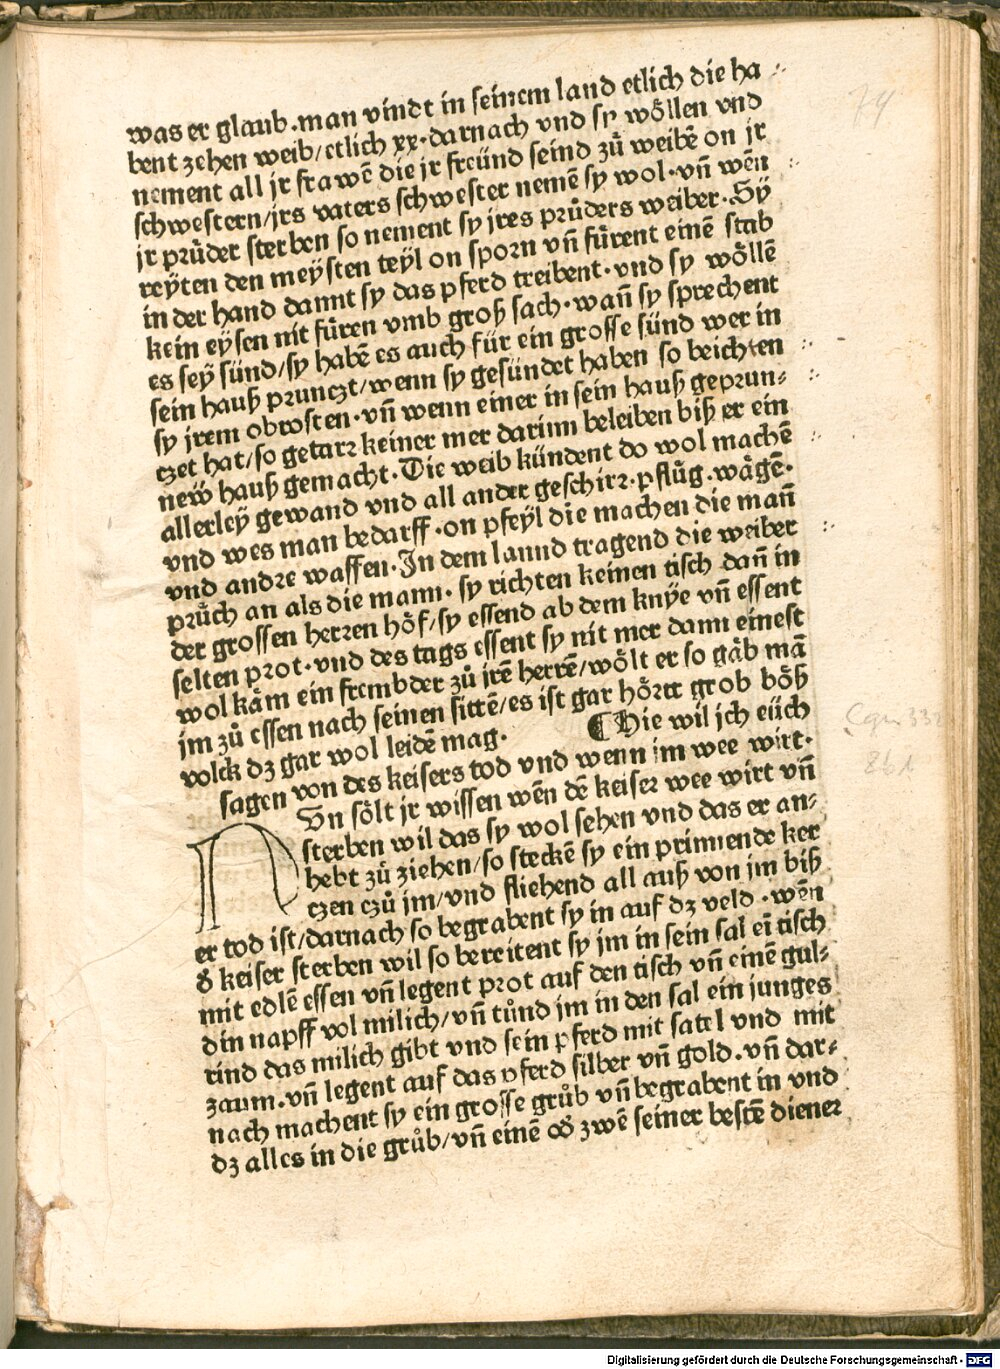 was er glaub.man vindt in seinem land etlich die ha
bent zehen weib/etlich xx.darnach vnd sy wöllen vnd
nement all jr frawē die jr freünd seind zů weibē on jr
schwestern/jrs vaters schwester nemē sy wol.vn̄ wēn
jr průder sterben so nement sy jres průders weiber.Sÿ
reyten den meÿsten teÿl on sporn vn̄ fůrent einē stab
in der hand damit sy das pferd treibent.vnd sy wöllē
kein eÿsen nit füren vmb groß sach.wan̄ sy sprechent
es seÿ sünd/sy habē es auch für ein grosse sünd wer in
sein hauß prunczt/wenn sy gesündet haben so beichten
sy jrem obrosten.vn̄ wenn einer in sein hauß geprun⸗
czet hat/so getarꝛ keiner mer darinn beleiben biß er ein
neẅ hauß gemacht.Die weib kündent do wol machē
allerleÿ gewand vnd all ander geschirꝛ.pflůg.wägē.
vnd wes man bedarff.on pfeÿl die machen die man̄
vnd andꝛe waffen.In dem lannd tragend die weiber
průch an als die mann.sy richten keinen tisch dan̄ in
der grossen herꝛen höf/sy essend ab dem knÿe vn̄ essent
selten prot.vnd des tags essent sy nit mer dann einest
wol käm ein frembder zů jrē herrē/wölt er so gäb mā
jm zů essen nach seinen sittē/es ist gar hört grob böß
volck dz gar wol leidē mag. ¶Hie wil jch eüch
sagen von des keisers tod vnd wenn im wee wirt.
NVn sölt jr wissen wēn dē keiseꝛ wee wirt vn̄
sterben wil das sy wol sehen vnd das er an⸗
hebt zů ziehen/so steckē sy ein prinnende ker
czen czů jm/vnd fliehend all auß von jm biß
er tod ist/darnach so begrabent sy in auf dz veld.wēn
d̕ keiser sterben wil so bereitent sy jm in sein sal eī tisch
mit edlē essen vn̄ legent prot auf den tisch vn̄ einē gul⸗
din napff vol milich/vn̄ tůnd jm in den sal ein junges
rind das milich gibt vnd sein pferd mit satel vnd mit
zaum.vn̄ legent auf das pferd silber vn̄ gold.vn̄ dar⸗
nach machent sy ein grosse grůb vn̄ begrabent in vnd
dz alles in die grůb/vn̄ einē od̕ zwē seiner bestē dieneꝛ
74
Digitalisierung gefördert durch die Deutsche Forschungsgemeinschaft - DFG